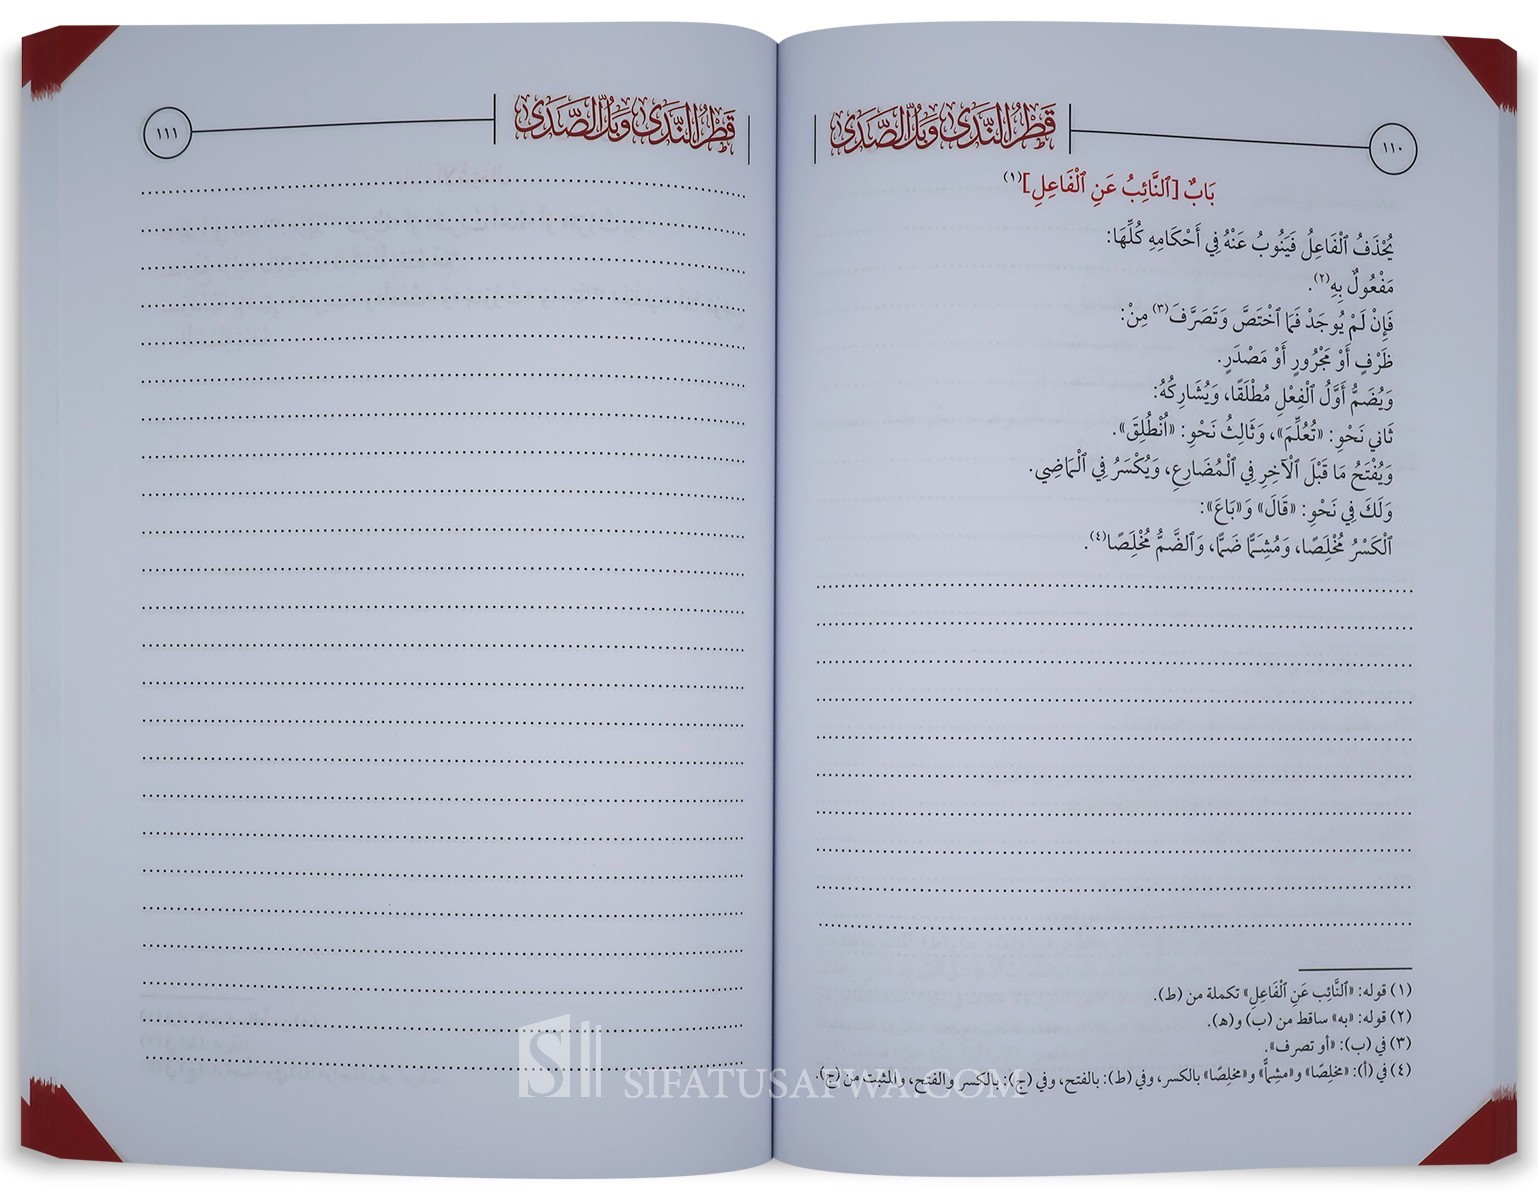 ١١٠
قَطْرُ النَّدَى وَبَلُّ الصَّدَى
بَابُ [ٱلنَّائِبُ عَنِ ٱلْفَاعِلِ](١)
يُحْذَفُ ٱلْفَاعِلُ فَيَنُوبُ عَنْهُ فِي أَحْكَامِهِ كُلِّهَا:
مَفْعُولٌ بِهِ(٢).
فَإِنْ لَمْ يُوجَدْ فَمَا ٱخْتَصَّ وَتَصَرَّفَ(٣) مِنْ:
ظَرْفٍ أَوْ مَجْرُورٍ أَوْ مَصْدَرٍ.
وَيُضَمُّ أَوَّلُ ٱلْفِعْلِ مُطْلَقًا، وَيُشَارِكُهُ:
ثَانِي نَحْوِ: «تُعُلِّمَ»، وَثَالِثُ نَحْوِ: «ٱنْطُلِقَ».
وَيُفْتَحُ مَا قَبْلَ ٱلْآخِرِ فِي ٱلْمُضَارِعِ، وَيُكْسَرُ فِي ٱلْمَاضِي.
وَلَكَ فِي نَحْوِ: «قَالَ» وَ«بَاعَ»:
ٱلْكَسْرُ مُخْلَصًا، وَمُشِمًّا ضَمًّا، وَٱلضَّمُّ مُخْلَصًا(٤).
(١) قوله: «ٱلنَّائِبِ عَنِ ٱلْفَاعِلِ» تكملة من (ط).
(٢) قوله: «به» ساقط من (ب) و(ه).
(٣) في (ب): «أو تصرف».
(٤) في (أ): «مخلِصًا» و«مشِمًّا» و«مخلِصًا» بالكسر، وفي (ط): بالفتح، وفي (ج): بالكسر والفتح، والمثبت من (ح).
قَطْرُ النَّدَى وَبَلُّ الصَّدَى
١١١
S SIFATUSAFWA.COM